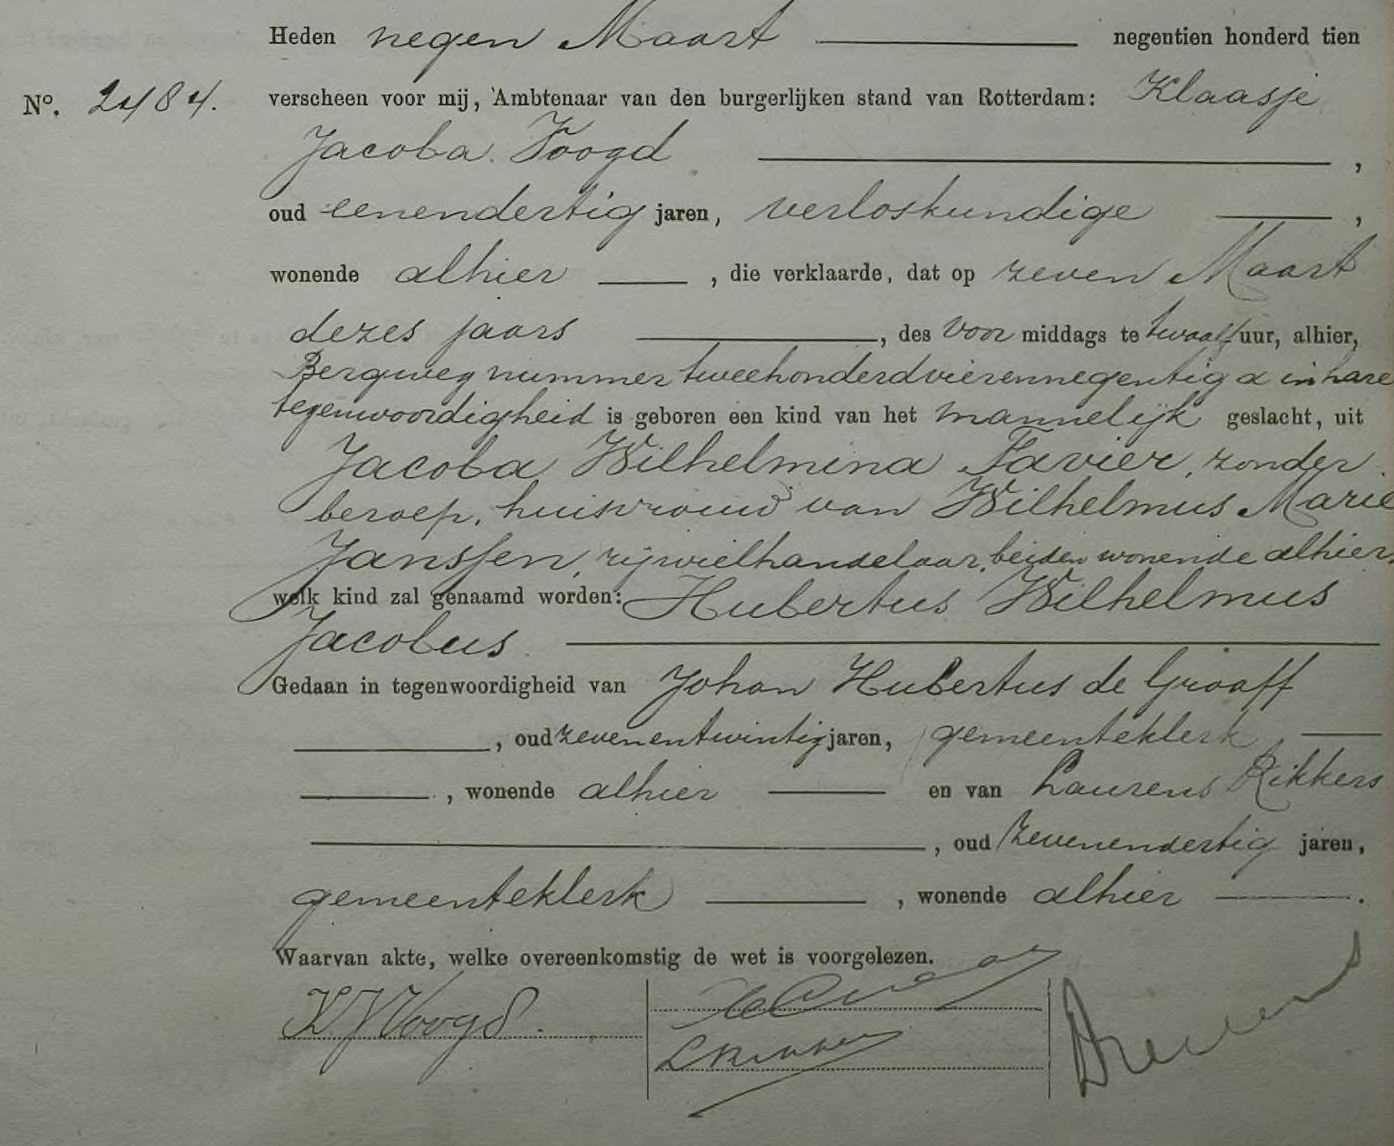 Heden negen Maart negentien honderd tien
No. 2484. verscheen voor mij, Ambtenaar van den burgerlijken stand van Rotterdam: Klaasje
Jacoba Voogd ,
oud eenendertig jaren, verloskundige ,
wonende alhier , die verklaarde, dat op zeven Maart
dezes jaars , des voor middags te twaalf uur, alhier,
Bergweg nummer tweehonderdvierennegentig a in hare
tegenwoordigheid is geboren een kind van het mannelijk geslacht, uit
Jacoba Wilhelmina Favier, zonder
beroep, huisvrouw van Wilhelmus Marie
Janssen, rijwielhandelaar, beiden wonende alhier,
welk kind zal genaamd worden: Hubertus Wilhelmus
Jacobus.
Gedaan in tegenwoordigheid van Johan Hubertus de Graaff
, oud zevenentwintig jaren, gemeenteklerk,
, wonende alhier en van Laurens Rikkers
, oud zevenendertig jaren,
gemeenteklerk , wonende alhier .
Waarvan akte, welke overeenkomstig de wet is voorgelezen.
KJVoogd.
LRikkers